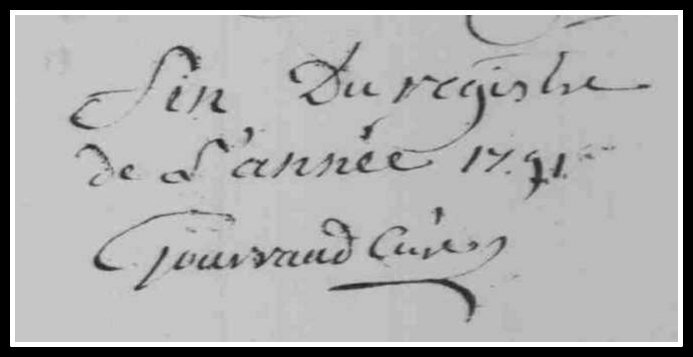 fin Du registre
de L'année 1791.
Gourraud Curé